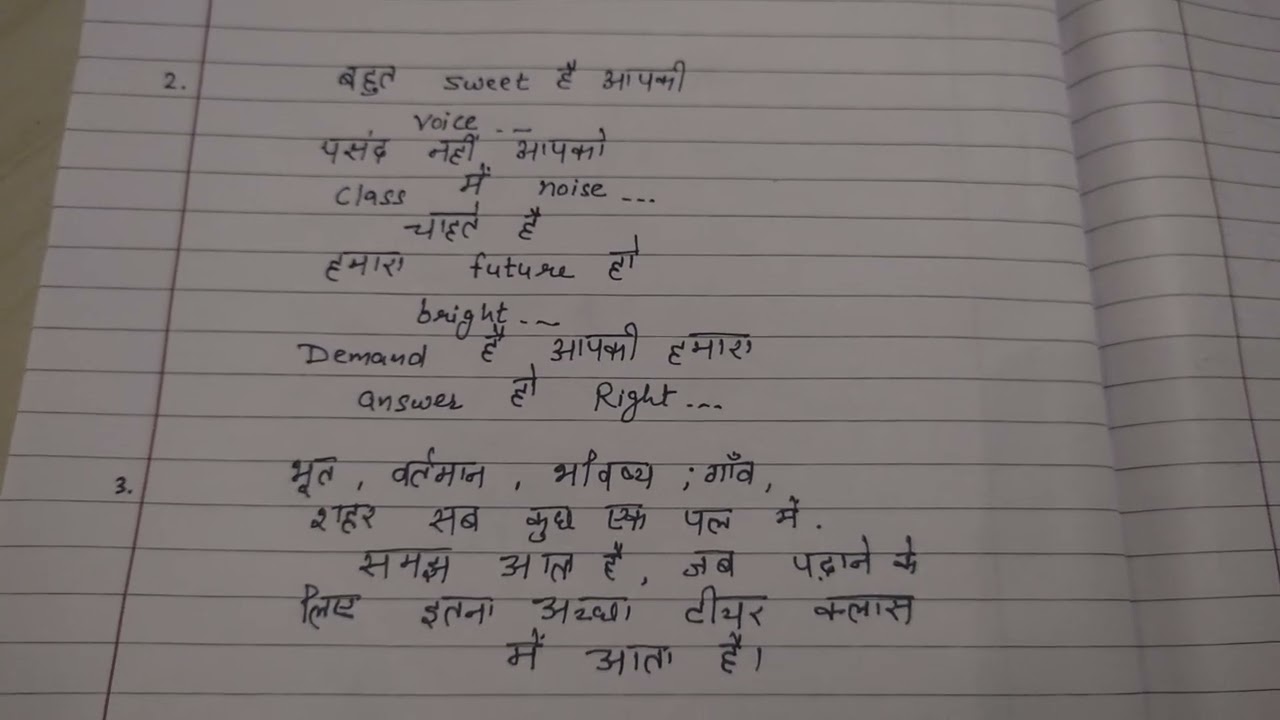 2. बहुत sweet है आपकी
voice ...
पसंद नहीं आपको
class में noise ...
चाहते है
हमारा future हो
bright ...
Demand है आपकी हमारा
answer हो Right ...
3. भूत , वर्तमान , भविष्य ; गाँव ,
शहर सब कुछ एक पल में .
समझ आता है , जब पढ़ाने के
लिए इतना अच्छा टीचर क्लास
में आता है।